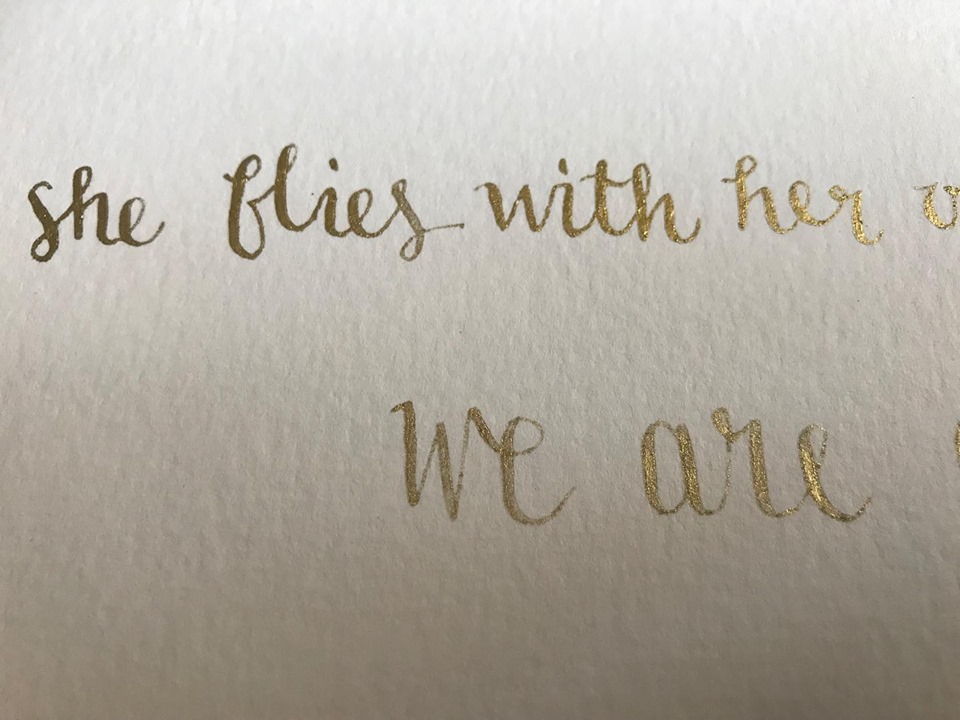 she flies with her
we are